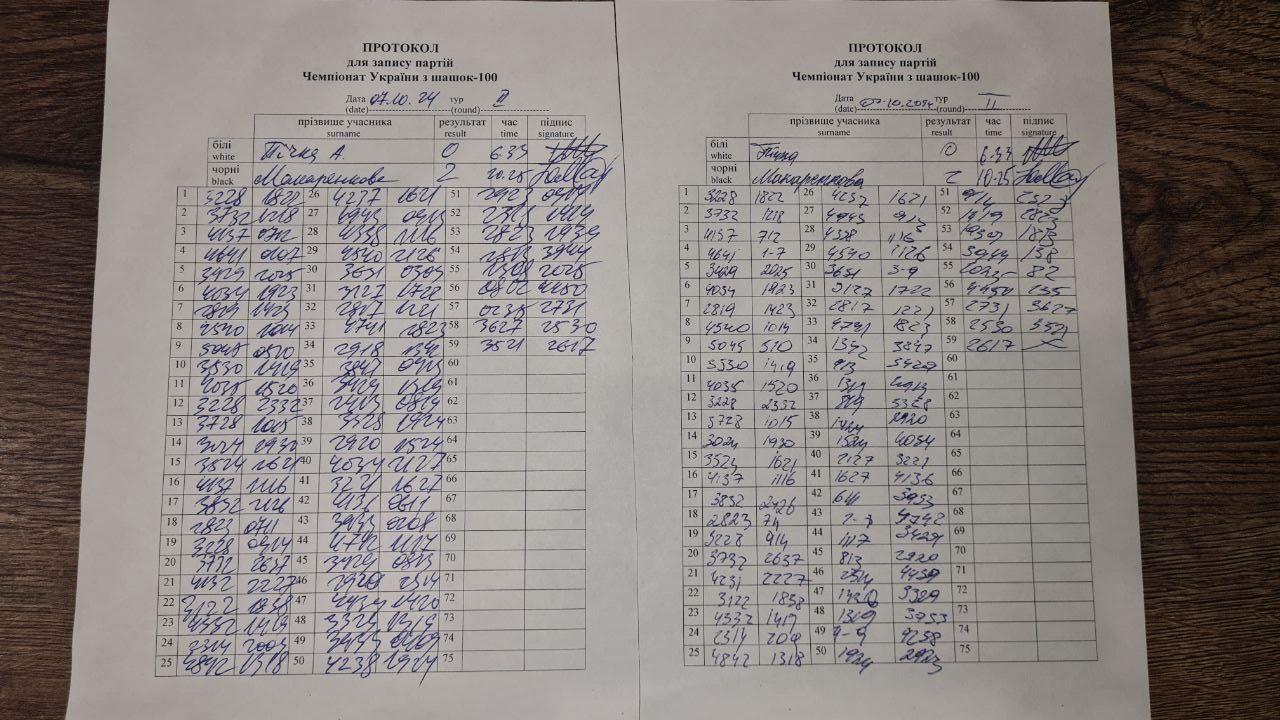 ПРОТОКОЛ
для запису партій
Чемпіонат України з шашок-100
Дата 07.10.24 тур II
(date) (round)
прізвище учасника результат час підпис
surname result time signature
білі Пічка А. 0 6.33
white
чорні Макаренкова 2 10.25
black
1 3228 1822 26 4237 1621 51 2923 0914
2 3732 1218 27 4943 0913 52 1419
3 4137 0712 28 4338 1116 53 2823 1939
4 4641 0107 29 4540 2126 54 3944
5 3429 2025 30 3631 0309 55 2025
6 4034 1923 31 3127 1722 56 4450
7 2819 1423 32 2817 1221 57 0235 2731
8 4540 1014 33 4741 1823 58 3627 2530
9 5045 0510 34 2918 59 3521 2617
10 3530 1419 35 3847 0913 60
11 4035 1520 36 1319 61
12 3228 2332 37 0819 62
13 3728 1015 38 3328 1924 63
14 3024 1930 39 2920 1524 64
15 3524 1621 40 4034 2127 65
16 4137 1116 41 3221 1627 66
17 3832 2126 42 4136 0611 67
18 2823 0711 43 3933 0208 68
19 3228 0914 44 4742 1117 69
20 3732 2637 45 3424 0813 70
21 4232 2227 46 2920 2314 71
22 3122 1838 47 4439 1420 72
23 4332 1419 48 3329 1319 73
24 2314 2009 49 3933 0409 74
25 4842 1318 50 4238 1924 75
ПРОТОКОЛ
для запису партій
Чемпіонат України з шашок-100
Дата 07.10.2024 тур II
(date) (round)
прізвище учасника результат час підпис
surname result time signature
білі Пічка 0 6.33
white
чорні Макаренкова 2 10.25
black
1 3228 1822 26 4237 1621 51 914 2923
2 3732 1218 27 4943 913 52 1419 2823
3 4137 712 28 4338 1116 53
4 4641 1-7 29 4540 2126 54 3944
5 3429 2025 30 3631 3-9 55 82
6 4034 1923 31 3127 1722 56 4450
7 2819 1423 32 2817 1221 57 2731 3627
8 4540 1014 33 4741 1823 58 2530 3521
9 5045 510 34 3847 59 2617
10 3530 1419 35 913 3429 60
11 4035 1520 36 1319 61
12 3228 2332 37 819 3328 62
13 3728 1015 38 1924 2920 63
14 3024 1930 39 1524 4034 64
15 3524 1621 40 2127 3221 65
16 4137 1116 41 1627 4136 66
17 3832 2126 42 611 3933 67
18 2823 711 43 4742 68
19 3228 914 44 1117 3424 69
20 3732 2637 45 813 2920 70
21 4231 2227 46 2314 4439 71
22 3122 1838 47 1420 3329 72
23 4332 1419 48 1319 3933 73
24 2314 209 49 4-9 4238 74
25 4842 1318 50 1924 2923 75